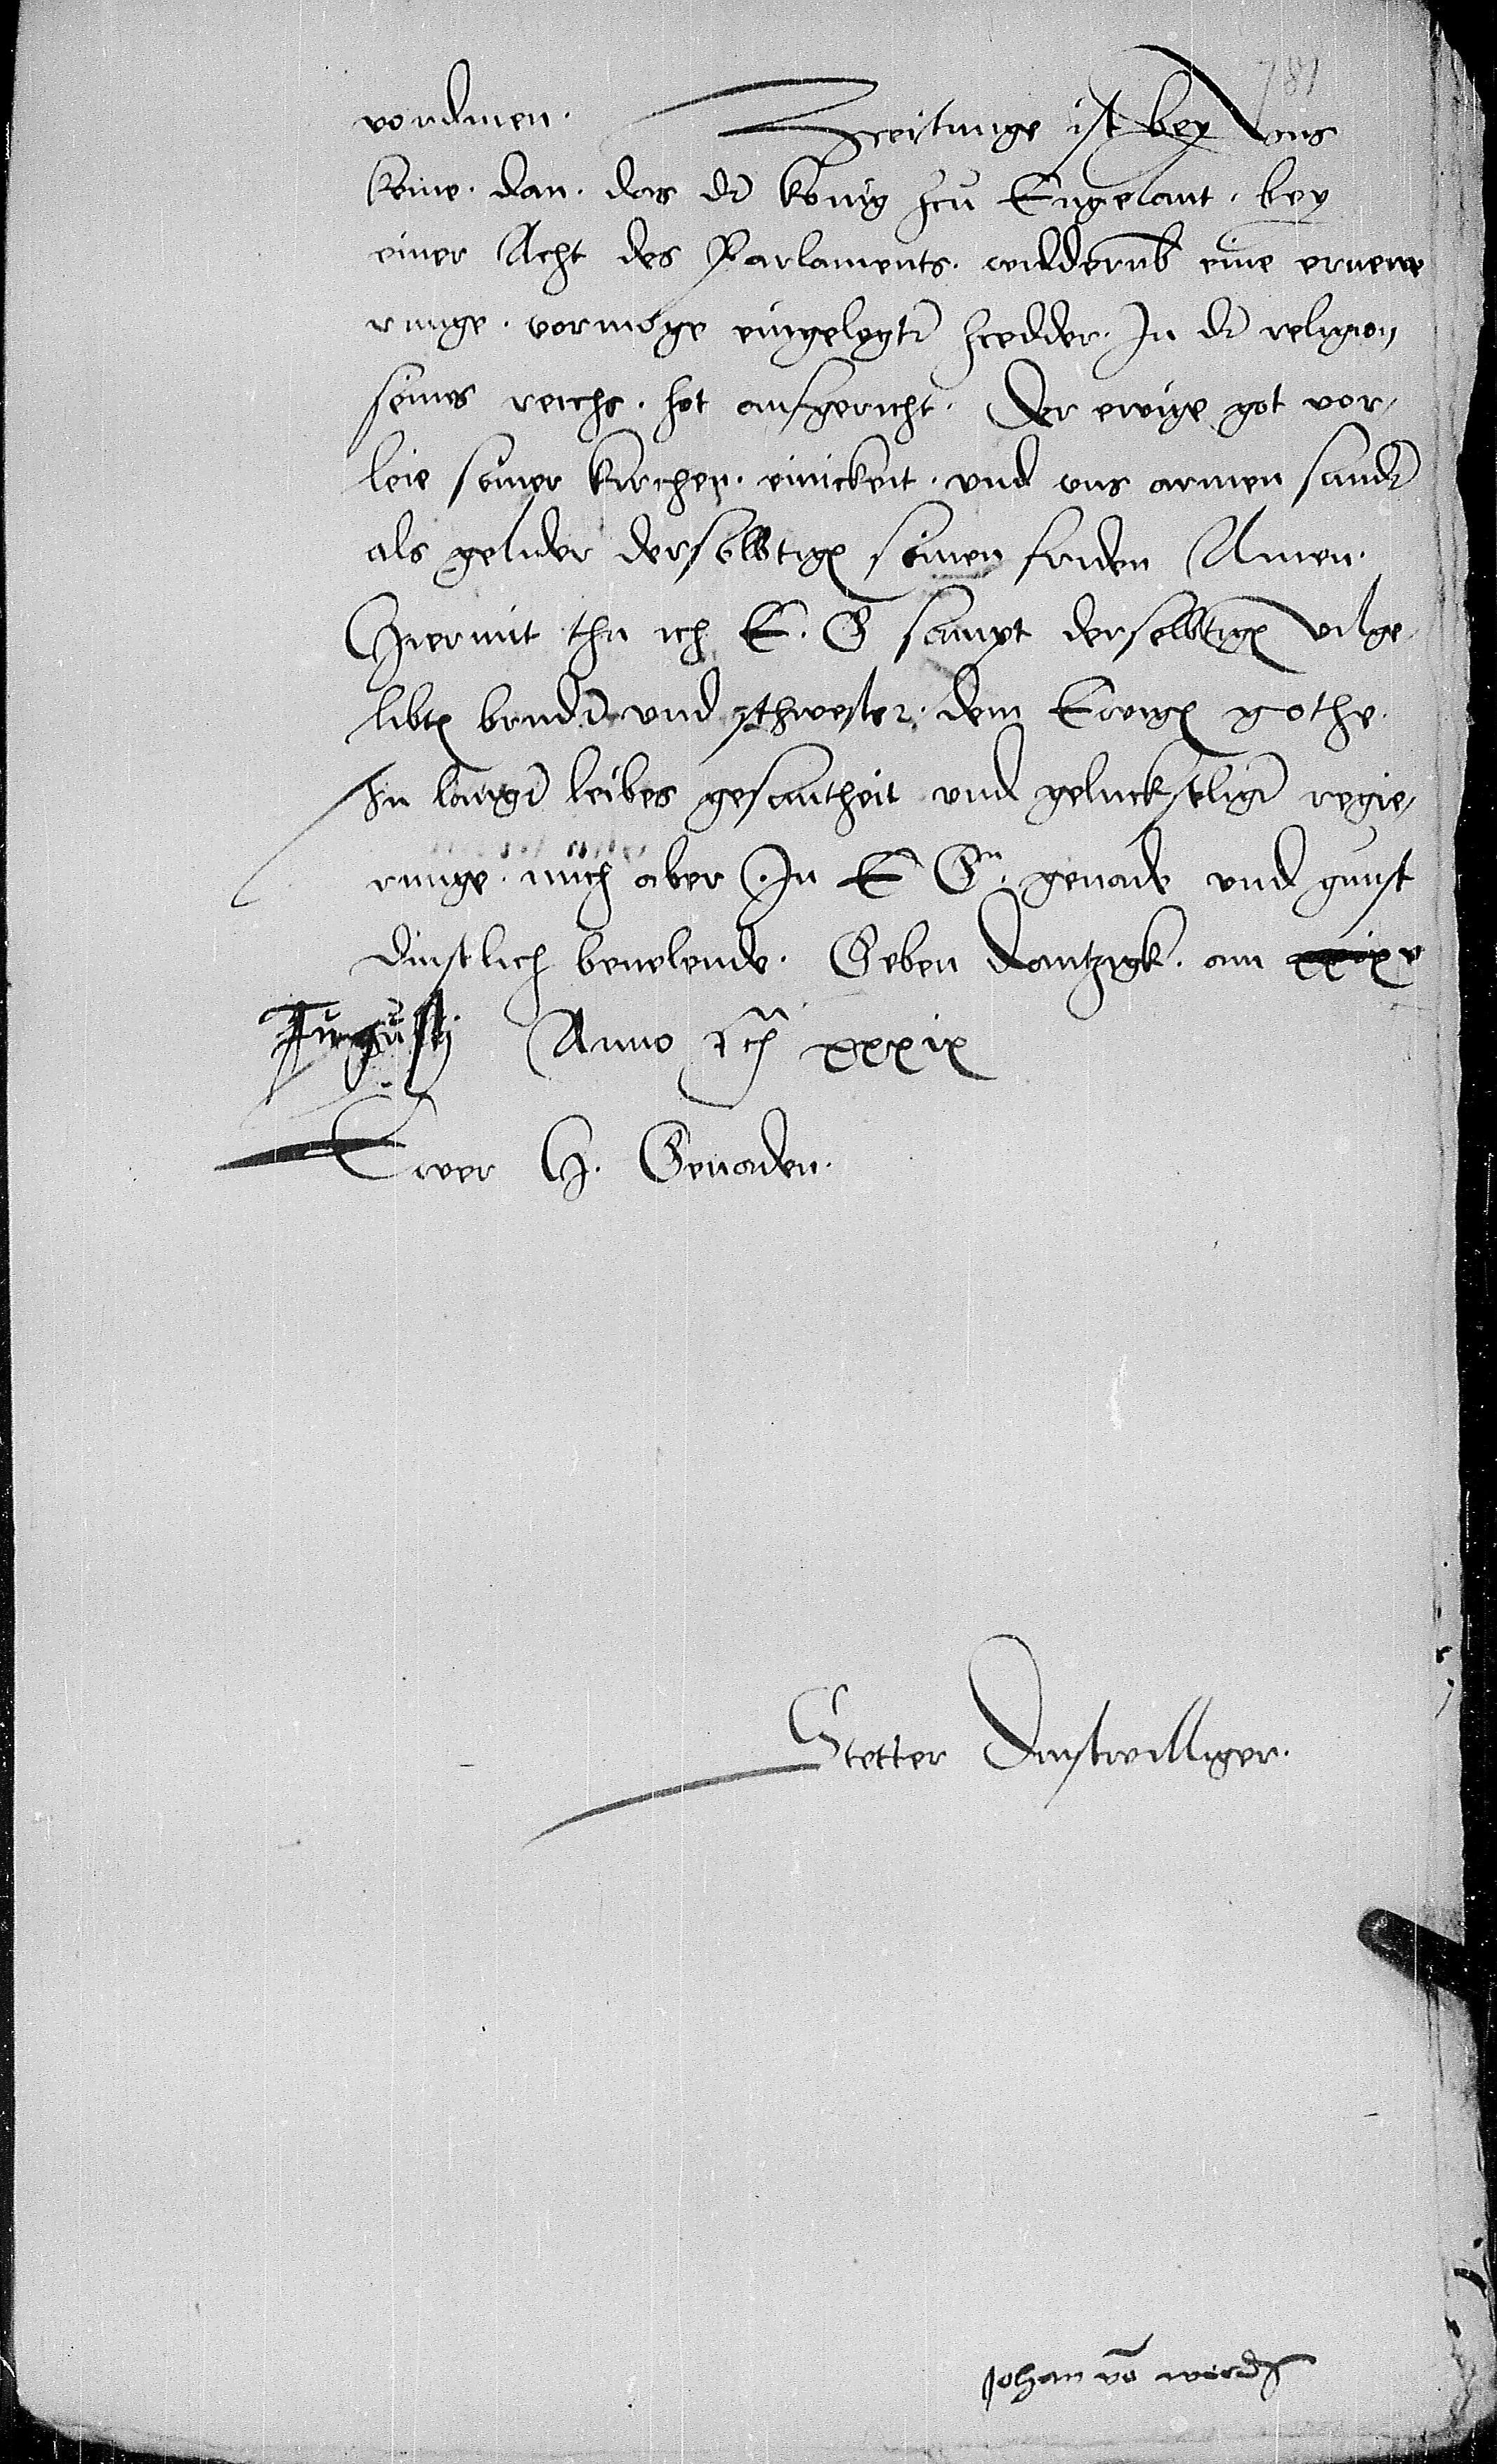 781
vordinen. Zceitunge ist bey uns
keine. dan. das dr konig zcu Engelant. bey
einer Acht des Parlaments. widderumb eine ernew
runge. vormoge eingelegtr Zceddr. In dr religion
seines reichs. hot aufgericht. Der ewige got vor,
leie seiner kirchen. einickeit. und uns armen
als gelider derselbtigen seinen friden Amen.
Hiermit thu ich E. G sampt derselbtigen vilge,
libten brudr und schwester. dem Ewigen gothe.
In langr leibes gesuntheit und geluckseligr regie,
runge. mich aber In E Gn. genade und gunst
dinstlich bevelende. Geben Dantzigk. am
Augusti Anno xxxix
Ewer H. Genaden.
Stetter Dinstwilliger.
Johan vo werden